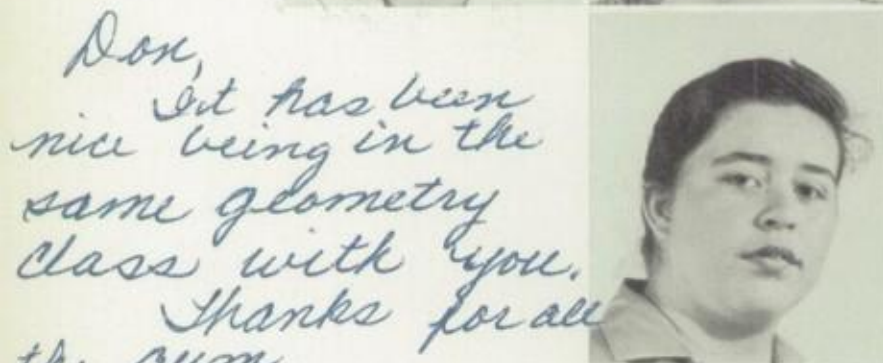 Don,
It has been
nice being in the
same geometry
class with you.
Thanks for all
the gum